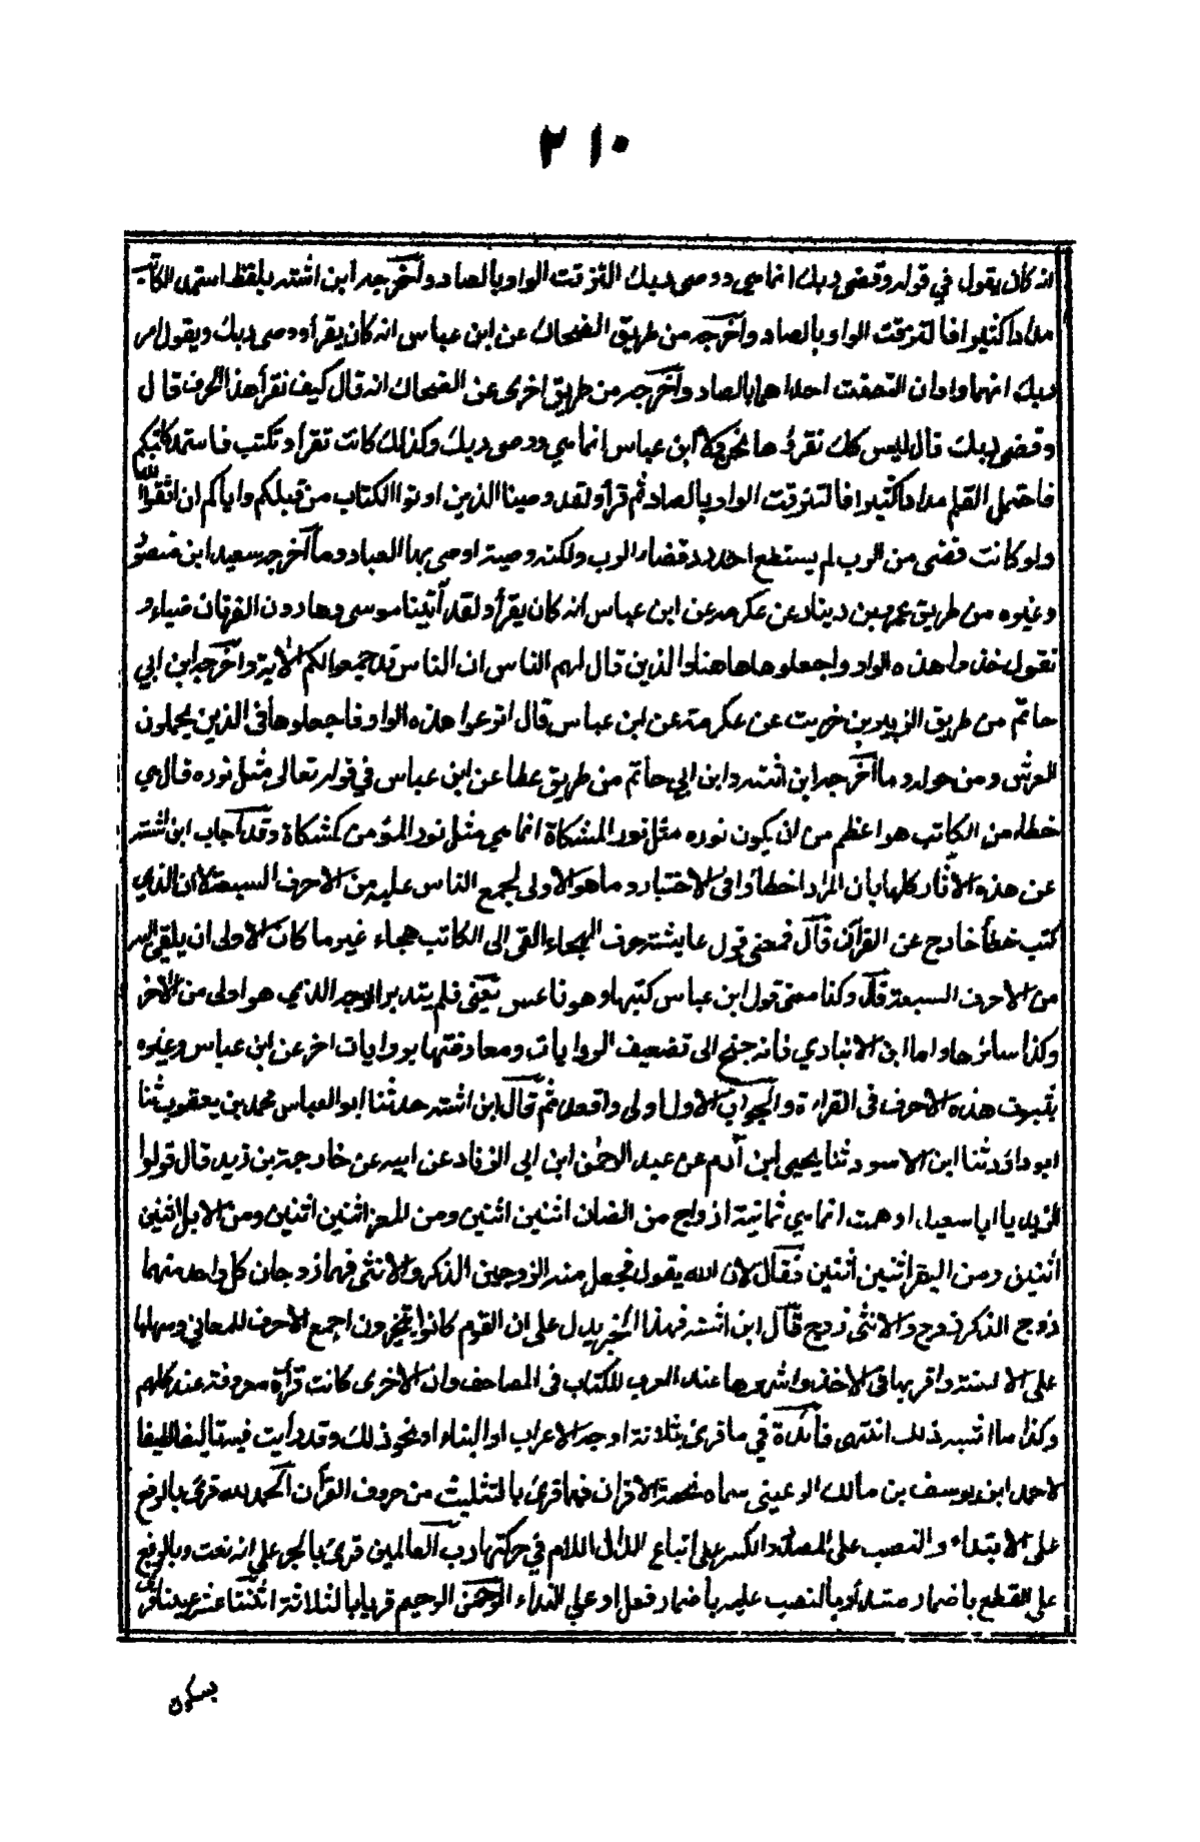 ٢١٠
انه كان يقول في قوله وقضى ربك انما هي ووصى ربك التزقت الواو بالصاد وأخرجه ابن اشته بلفظ استمد الكاتب
مدادا كثيرا فالتزقت الواو بالصاد وأخرجه من طريق الضحاك عن ابن عباس انه كان يقرأ ووصى ربك ويقول امر
ربك انهما واوان التصقت احداهما بالصاد وأخرجه من طريق اخرى عن الضحاك انه قال كيف تقرأ هذا الحرف قال
وقضى ربك قال ليس كذلك نقرؤها نحن ولا ابن عباس انما هي ووصى ربك وكذلك كانت تقرأ وتكتب فاستمد كاتبكم
فاحتمل القلم مدادا كثيرا فالتزقت الواو بالصاد ثم قرأ ولقد وصينا الذين اوتوا الكتاب من قبلكم واياكم ان اتقوا الله
ولو كانت قضى من الرب لم يستطع احد رد قضاء الرب ولكنه وصية اوصى بها العباد وما أخرجه سعيد ابن منصور
وغيره من طريق عمرو بن دينار عن عكرمه عن ابن عباس انه كان يقرأ ولقد آتينا موسى وهارون الفرقان ضياء و
يقول خذوا هذه الواو واجعلوها هاهنا والذين قال لهم الناس ان الناس قد جمعوا لكم الآية وأخرجه ابن ابي
حاتم من طريق الزبير بن خريت عن عكرمة عن ابن عباس قال انزعوا هذه الواو فاجعلوها في الذين يحملون
العرش ومن حوله وما أخرجه ابن اشته وابن ابي حاتم من طريق عطا عن ابن عباس في قوله تعالى مثل نوره قال هي
خطاء من الكاتب هو اعظم من ان يكون نوره مثل نور المشكاة انما هي مثل نور المؤمن كمشكاة وقد أجاب ابن اشته
عن هذه الآثار كلها بان المراد اخطأوا في الاختيار وما هو الاولى لجمع الناس عليه من الاحرف السبعة لا ان الذي
كتب خطأ خارج عن القرآن قال فمعنى قول عايشة حرف الهجاء القى الى الكاتب هجاء غير ما كان الاولى ان يلقى اليه
من الاحرف السبعة قال وكذا معنى قول ابن عباس كتبها وهو ناعس يعني فلم يتدبر الوجه الذي هو اولى من الآخر
وكذا سائرها واما ابن الانباري فانه جنح الى تضعيف الروايات ومعارضتها بروايات اخر عن ابن عباس وغيره
بثبوت هذه الاحرف في القراءة والجواب الاول اولى واقعد ثم قال ابن اشته حدثنا ابو العباس محمد بن يعقوب ثنا
ابو داؤد ثنا ابن الاسود ثنا يحيى ابن آدم عن عبد الرحمن ابن ابي الزناد عن ابيه عن خارجة بن زيد قال قولوا
لزيد يا ابا سعيد اوهمت انما هي ثمانية ازواج من الضان اثنين اثنين ومن المعز اثنين اثنين ومن الابل اثنين
اثنين ومن البقر اثنين اثنين فقال لان الله يقول فجعل منه الزوجين الذكر والانثى فهما زوجان كل واحد منهما
زوج الذكر زوج والانثى زوج قال ابن اشته فهذا الخبر يدل على ان القوم كانوا يتخيرون اجمع الاحرف للمعاني وسهلها
على الالسنة واقربها في الاخذ واشهرها عند العرب للكتاب في المصاحف وان الاخرى كانت قرأة معروفة عند كلهم
وكذا ما اشبه ذلك انتهى فائدة في ما قرئ بثلاثة اوجه الاعراب او البناء او نحو ذلك وقد رأيت فيه تاليفا لطيفا
لاحمد ابن يوسف بن مالك الرعيني سماه تحفة الاقران فيما قرئ بالتثليث من حروف القرآن الحمد لله قرئ بالرفع
على الابتداء والنصب على المصدر والكسر على اتباع الدال اللام في حركتها رب العالمين قرئ بالجر على انه نعت وبالرفع
على القطع باضمار مبتدأ وبالنصب عليه باضمار فعل او على النداء الرحمن الرحيم قريا بالثلاثة اثنتا عشر عينا قرئ
بسكون